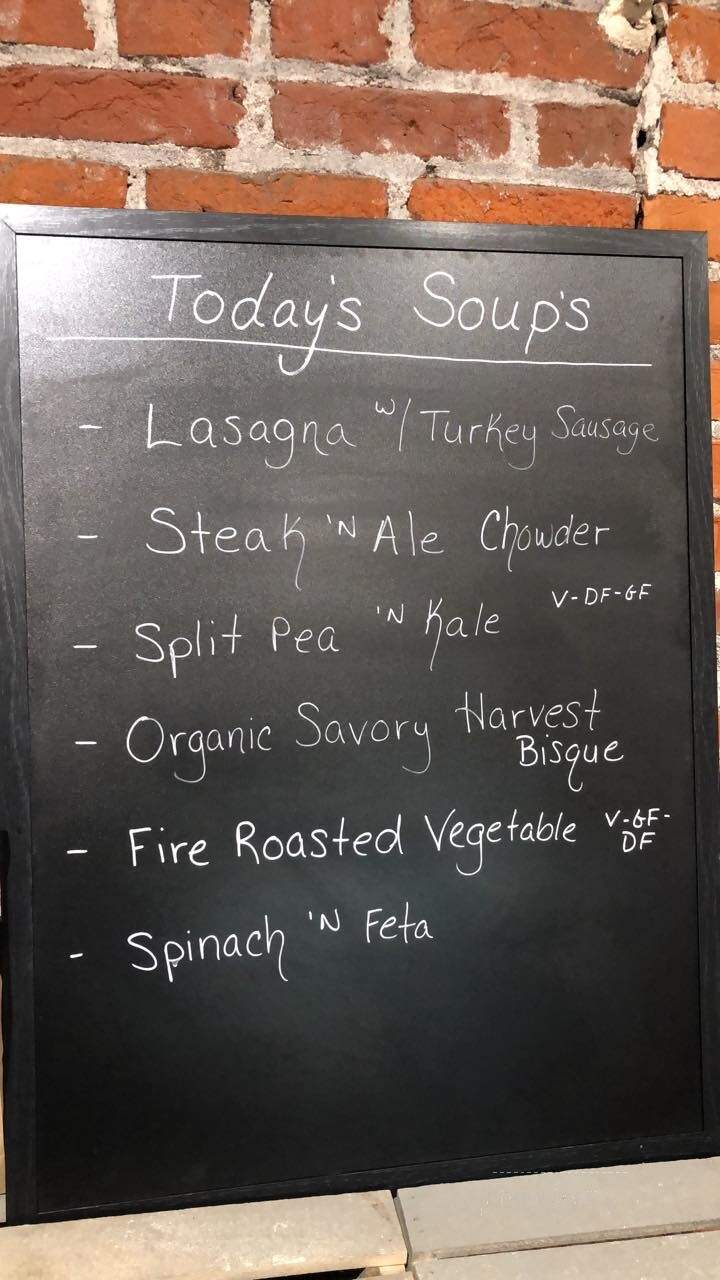 Today's Soup's
- Lasagna w/ Turkey Sausage
- Steak 'N Ale Chowder
- Split Pea 'N Kale V-DF-GF
- Organic Savory Harvest
Bisque
- Fire Roasted Vegetable V-GF-
DF
- Spinach 'N Feta